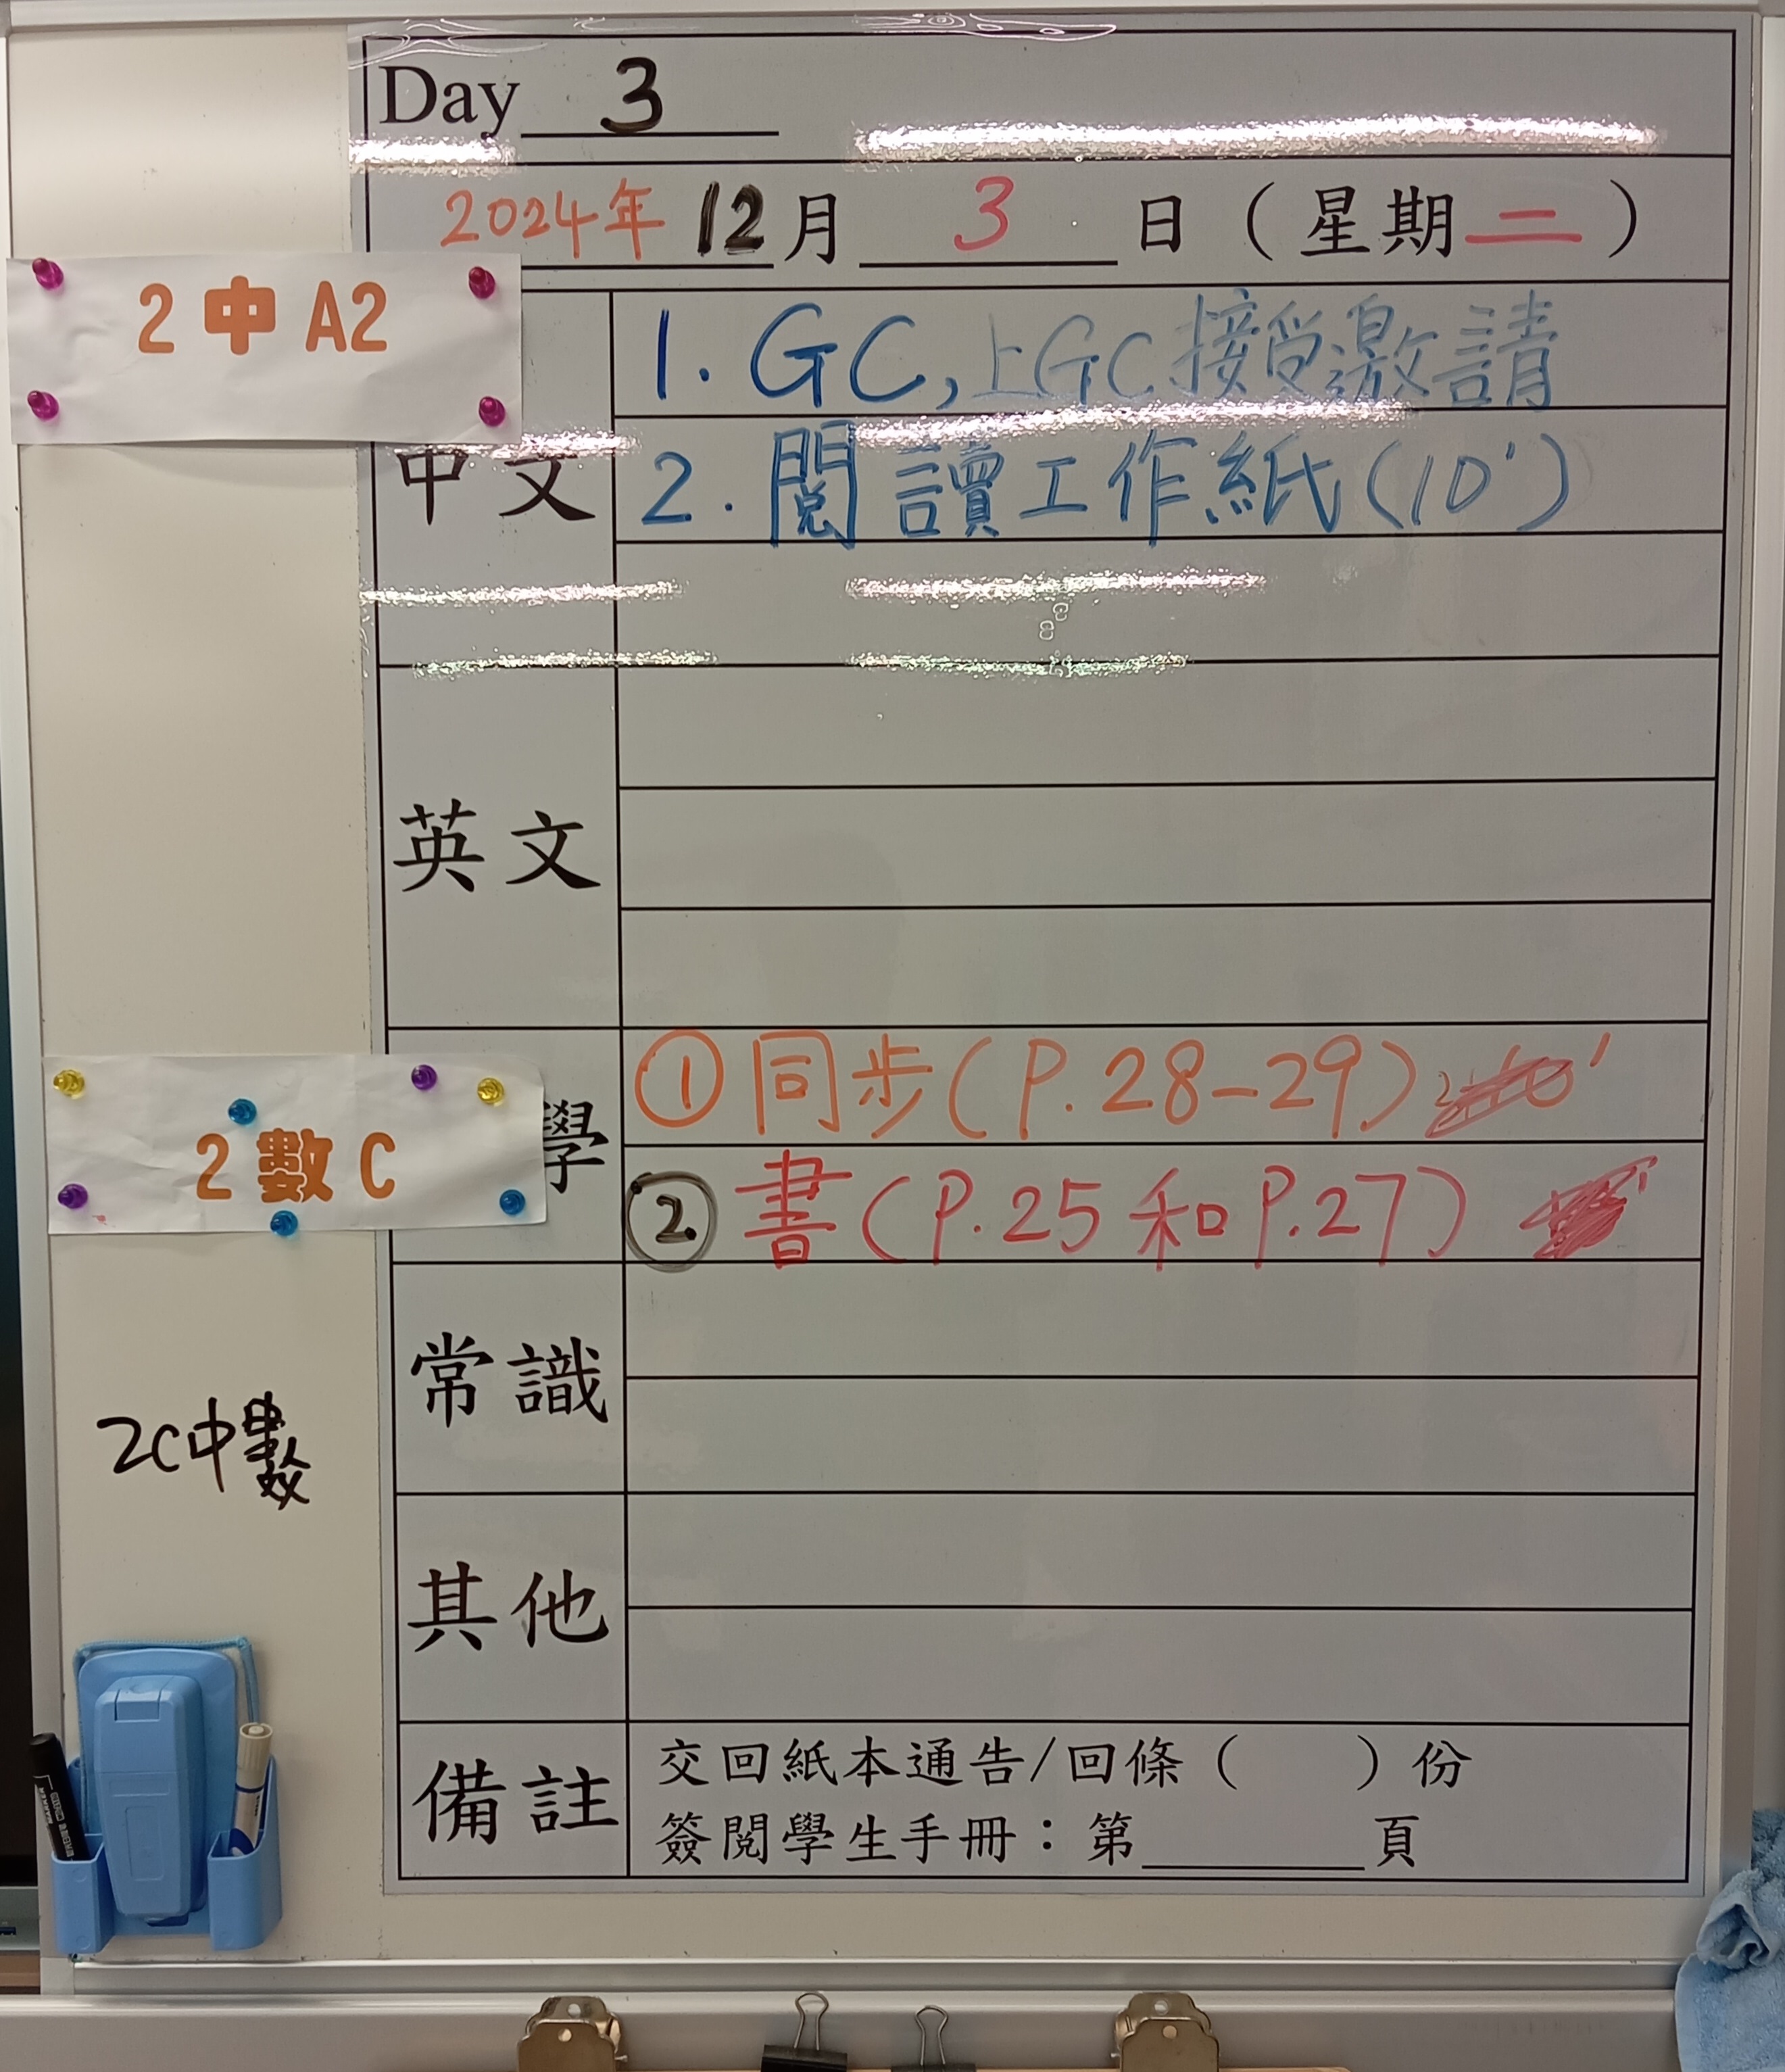 Day 3
2024年 12月 3 日（星期二）
2 中 A2
中文
1. GC,上GC接受邀請
2. 閱讀工作紙(10')
英文
2 數 C
學
① 同步(P.28-29)
② 書(P.25 和 P.27)
常識
2C中數
其他
備註
交回紙本通告/回條（ ）份
簽閱學生手冊：第 頁